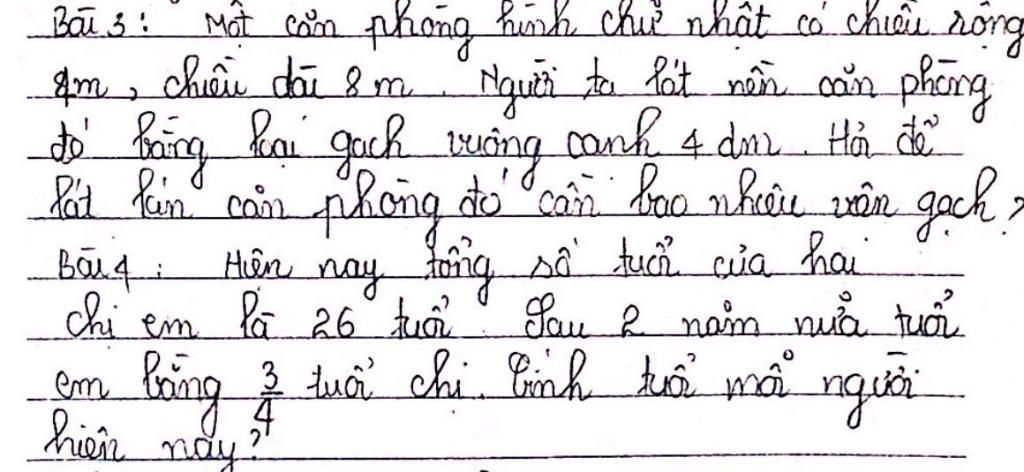 Bài 3: Một căn phòng hình chữ nhật có chiều rộng
4m, chiều dài 8m. Người ta lát nền căn phòng
đó bằng loại gạch vuông cạnh 4 dm. Hỏi để
lát kín căn phòng đó cần bao nhiêu viên gạch?
Bài 4: Hiện nay tổng số tuổi của hai
chị em là 26 tuổi. Sau 2 năm nữa tuổi
em bằng 3/4 tuổi chị. Tính tuổi mỗi người
hiện nay?